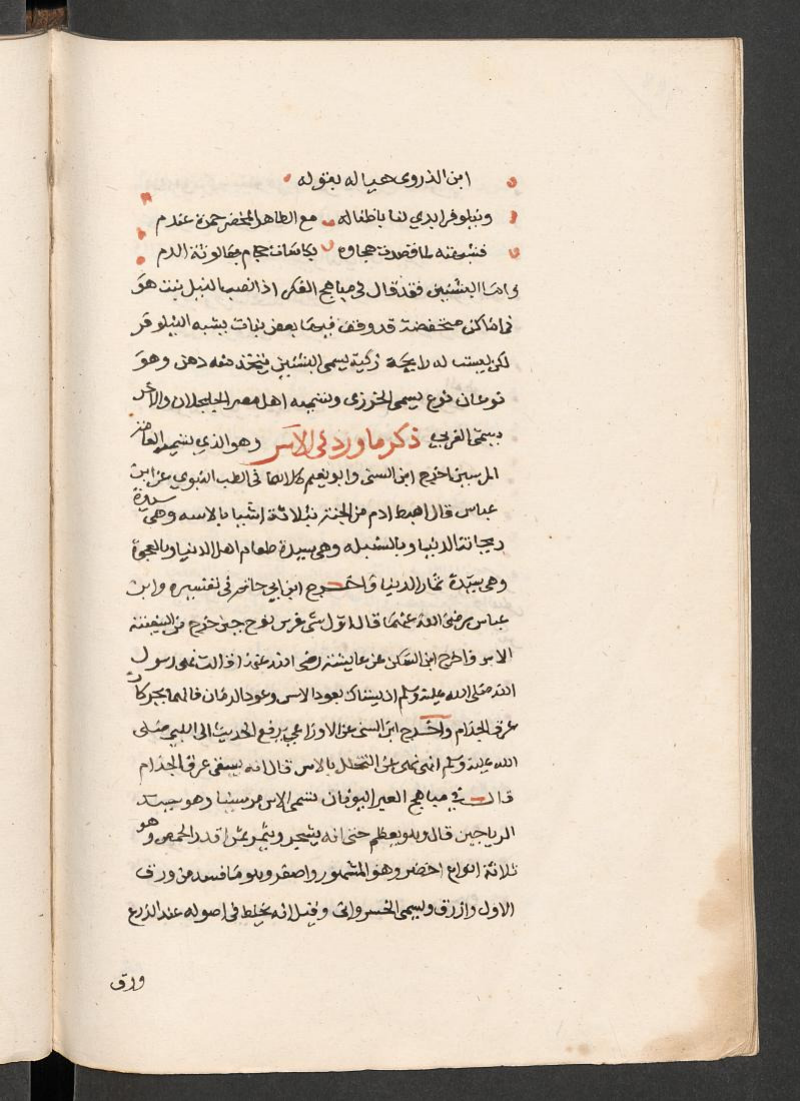 ابن الذروى حيا له بقوله
ونيلوفر ابدي لنا باطنا له مع الظاهر المخضر حمرة عندم
فشبهته لما قصدت هجاوه بكاسات حجام بها لوثة الدم
واما البشنين فقد قال في مباهج الفكر اذا نضب النيل نبت هو
في اماكن منخفضة قد وقف فيها بعض نبات يشبه النيلوفر
لكن ليست له رايحة زكية يسمى البشنين يتخذ منه دهن وهو
نوعان نوع يسمى الخوزى وتسميه اهل مصر الجلجلان والاخر
يسمى العربي ذكر ما ورد في الاس وهو الذي تسميه العامة
المرسين اخرج ابن السنى وابو نعيم كلاهما في الطب النبوي عن ابن
عباس قال اهبط ادم من الجنة بثلاثة اشيا بالاسه وهى سيدة
ريحانة الدنيا وبالسنبله وهى سيدة طعام اهل الدنيا وبالعجوة
وهى سيدة ثمار الدنيا واخرج ابن ابي حاتم في تفسيره وابن
عباس رضى الله عنهما قال اول شى غرس نوح حين خرج من السفينة
الاس واخرج ابن السكن عن عايشة رضى الله عنها قالت نهى رسول
الله صلى الله عليه وسلم ان يستاك بعود الاس وعود الرمان فانهما يحركان
عرق الجذام واخرج ابن السنى عن الاوزاعي يرفع الحديث الى النبي صلى
الله عليه وسلم انه نهى عن التخلل بالاس قال انه يسقى عرق الجذام
قال في مباهج العبر اليونان تسمى الاس مرسينا وهو سيد
الرياحين قال وهو يعظم حتى انه يشجر ويثمر ثمرا قدر الحمص وهو
ثلاثة انواع اخضر وهو المشهور واصفر وهو ما فسد من ورق
الاول وازرق ويسمى الخسرواني وقيل انه يخلط في اصوله عند الزرع
ورق